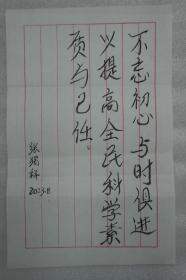 不忘初心与时俱进
以提高全民科学素
质与己任。
张瑞科
2023.8